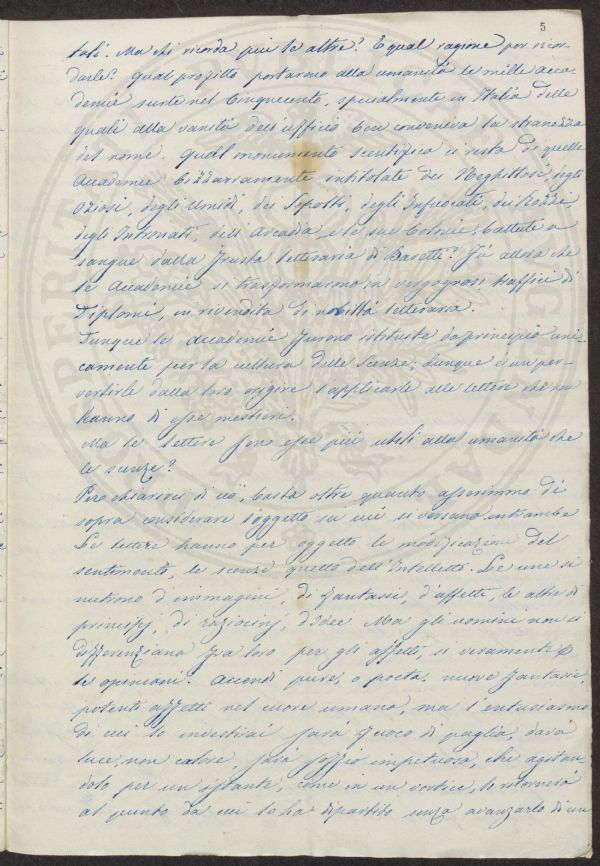 5
tali. Ma chi ricorda più le altre? E qual ragione per ricor-
darle? Qual profitto portarono alla umanità le mille acca-
demie surte nel Cinquecento, specialmente in Italia delle
quali alla vanità dell'ufficio ben conveniva la stranezza
del nome. Qual monumento scientifico ci resta di quelle
Accademie bizzarramente intitolate dei Neghittosi, degli
Oziosi, degli Umidi, dei Sepolti, degli Infuocati, dei Rozzi
degli Intronati, dell'Arcadia, e le sue Colonie, battute a
sangue dalla frusta letteraria di Baretti? Fu allora che
le Accademie si trasformarono in vergognosi traffici di
Diplomi, in rivendita di nobiltà letteraria.
Dunque le accademie furono istituite da principio uni-
camente per la cultura delle Scienze, dunque è un per-
vertirle dalla loro origine l'applicarle alle lettere che non
hanno di esse mestieri.
Ma le lettere sono esse più utili alla umanità che
le scienze?
Per chiarirci di ciò, basta oltre quanto asserimmo di
sopra considerare l'oggetto su cui si versano entrambe
Le lettere hanno per oggetto le modificazioni del
sentimento, le scienze quello dell'Intelletto. Le une si
nutrono d'immagini, di fantasie, d'affetti, le altre di
principj, di raziocinj, d'Idee. Ma gli uomini non si
differenziano fra loro per gli affetti, sì veramente p
le opinioni. Accendi pure, o poeta, nuove fantasie,
potenti affetti nel cuore umano, ma l'entusiasmo
di cui lo investirai farà fuoco di paglia, darà
luce, non calore, sarà soffio impetuoso, che agitan-
dolo per un istante, come in un vortice, lo rimarrà
al punto da cui lo ha dipartito senza avanzarlo di un